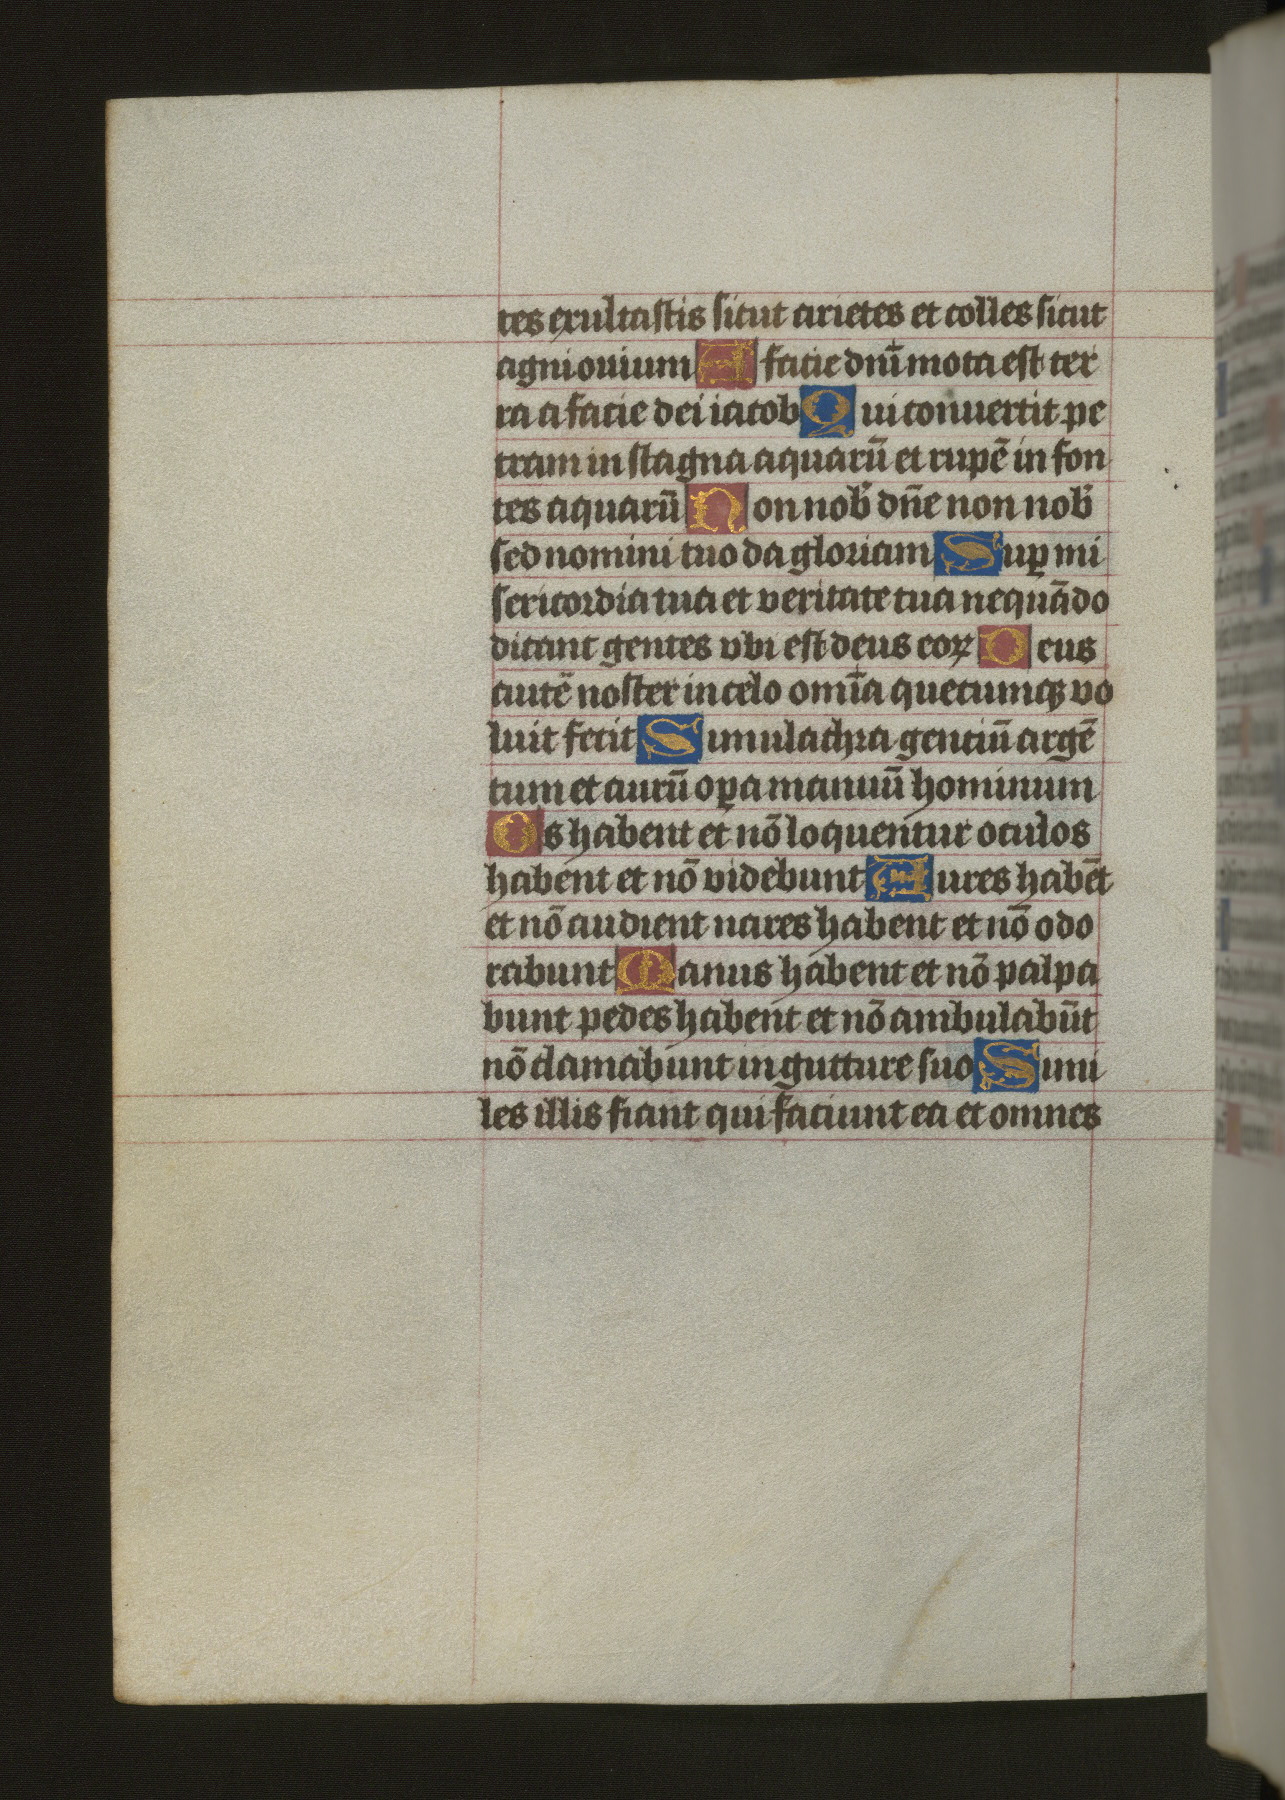 tes exultastis sicut arietes et colles sicut
agni ouium A facie dnī mota est ter
ra a facie dei iacob Qui conuertit pe
tram in stagna aquarū et rupē in fon
tes aquarū Non nob̄ dn̄e non nob̄
sed nomini tuo da gloriam Suꝑ mi
sericordia tua et veritate tua nequādo
dicant gentes vbi est deus eoꝝ Deus
autē noster in celo om̄ia quecumqꝫ vo
luit fecit Simulachra gentiū argē
tum et aurū oꝑa manuū hominum
Os habent et nō loquentur oculos
habent et nō videbunt Aures habēt
et nō audient nares habent et nō odo
rabunt Manus habent et nō palpa
bunt pedes habent et nō ambulabūt
nō clamabunt in gutture suo Simi
les illis fiant qui faciunt ea et omnes